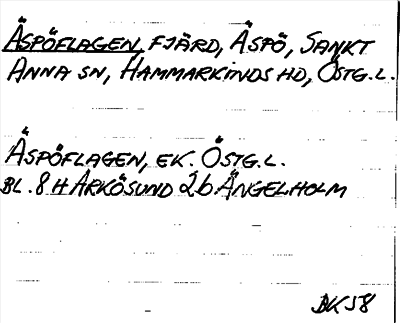 Äspöflagen, fjärd, Äspö, Sankt
Anna sn, Hammarkinds hd, Östg.l.
Äspöflagen, ek. Östg.l.
Bl. 8 H Arkösund 2b Ängelholm
BK 58